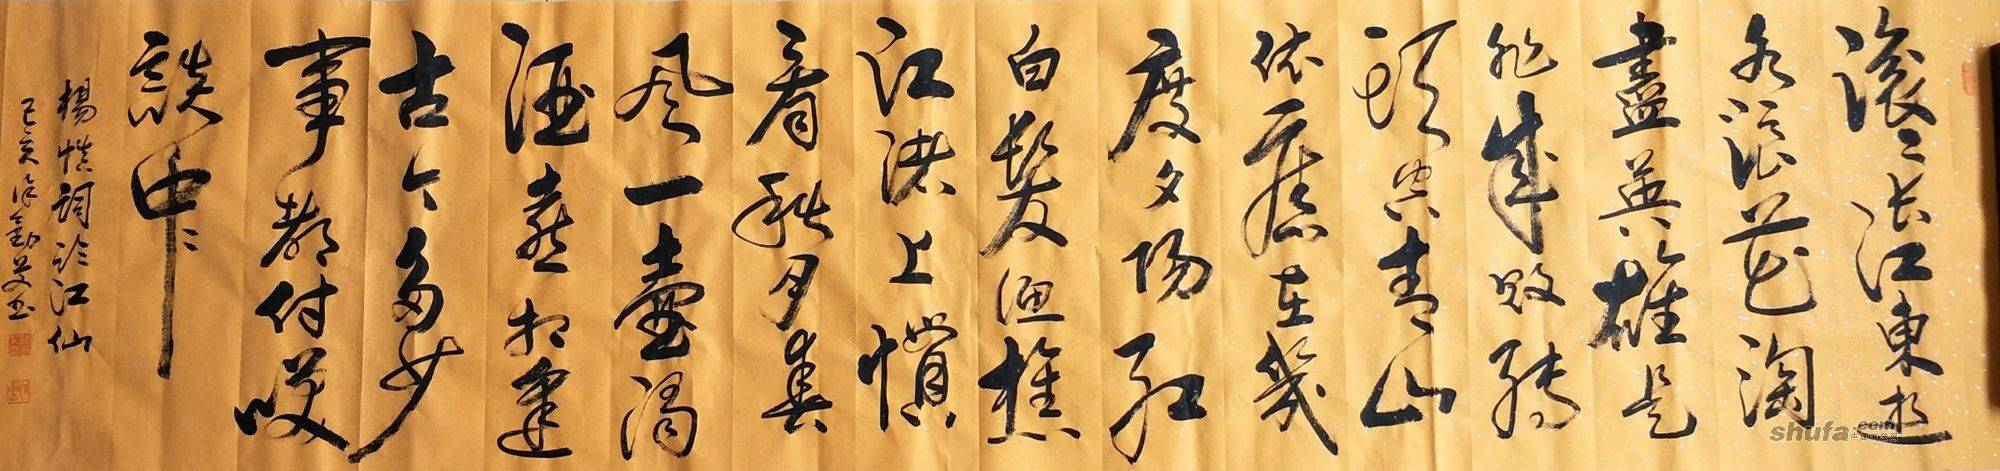 滚〻长江東逝
水浪花淘
盡英雄是
非成敗转
頭空青山
依舊在幾
度夕阳红
白髮渔樵
江渚上慣
看秋月春
风一壶濁
酒喜相逢
古今多少
事都付笑
談中〻
楊慎詞临江仙
己亥
shufa.com